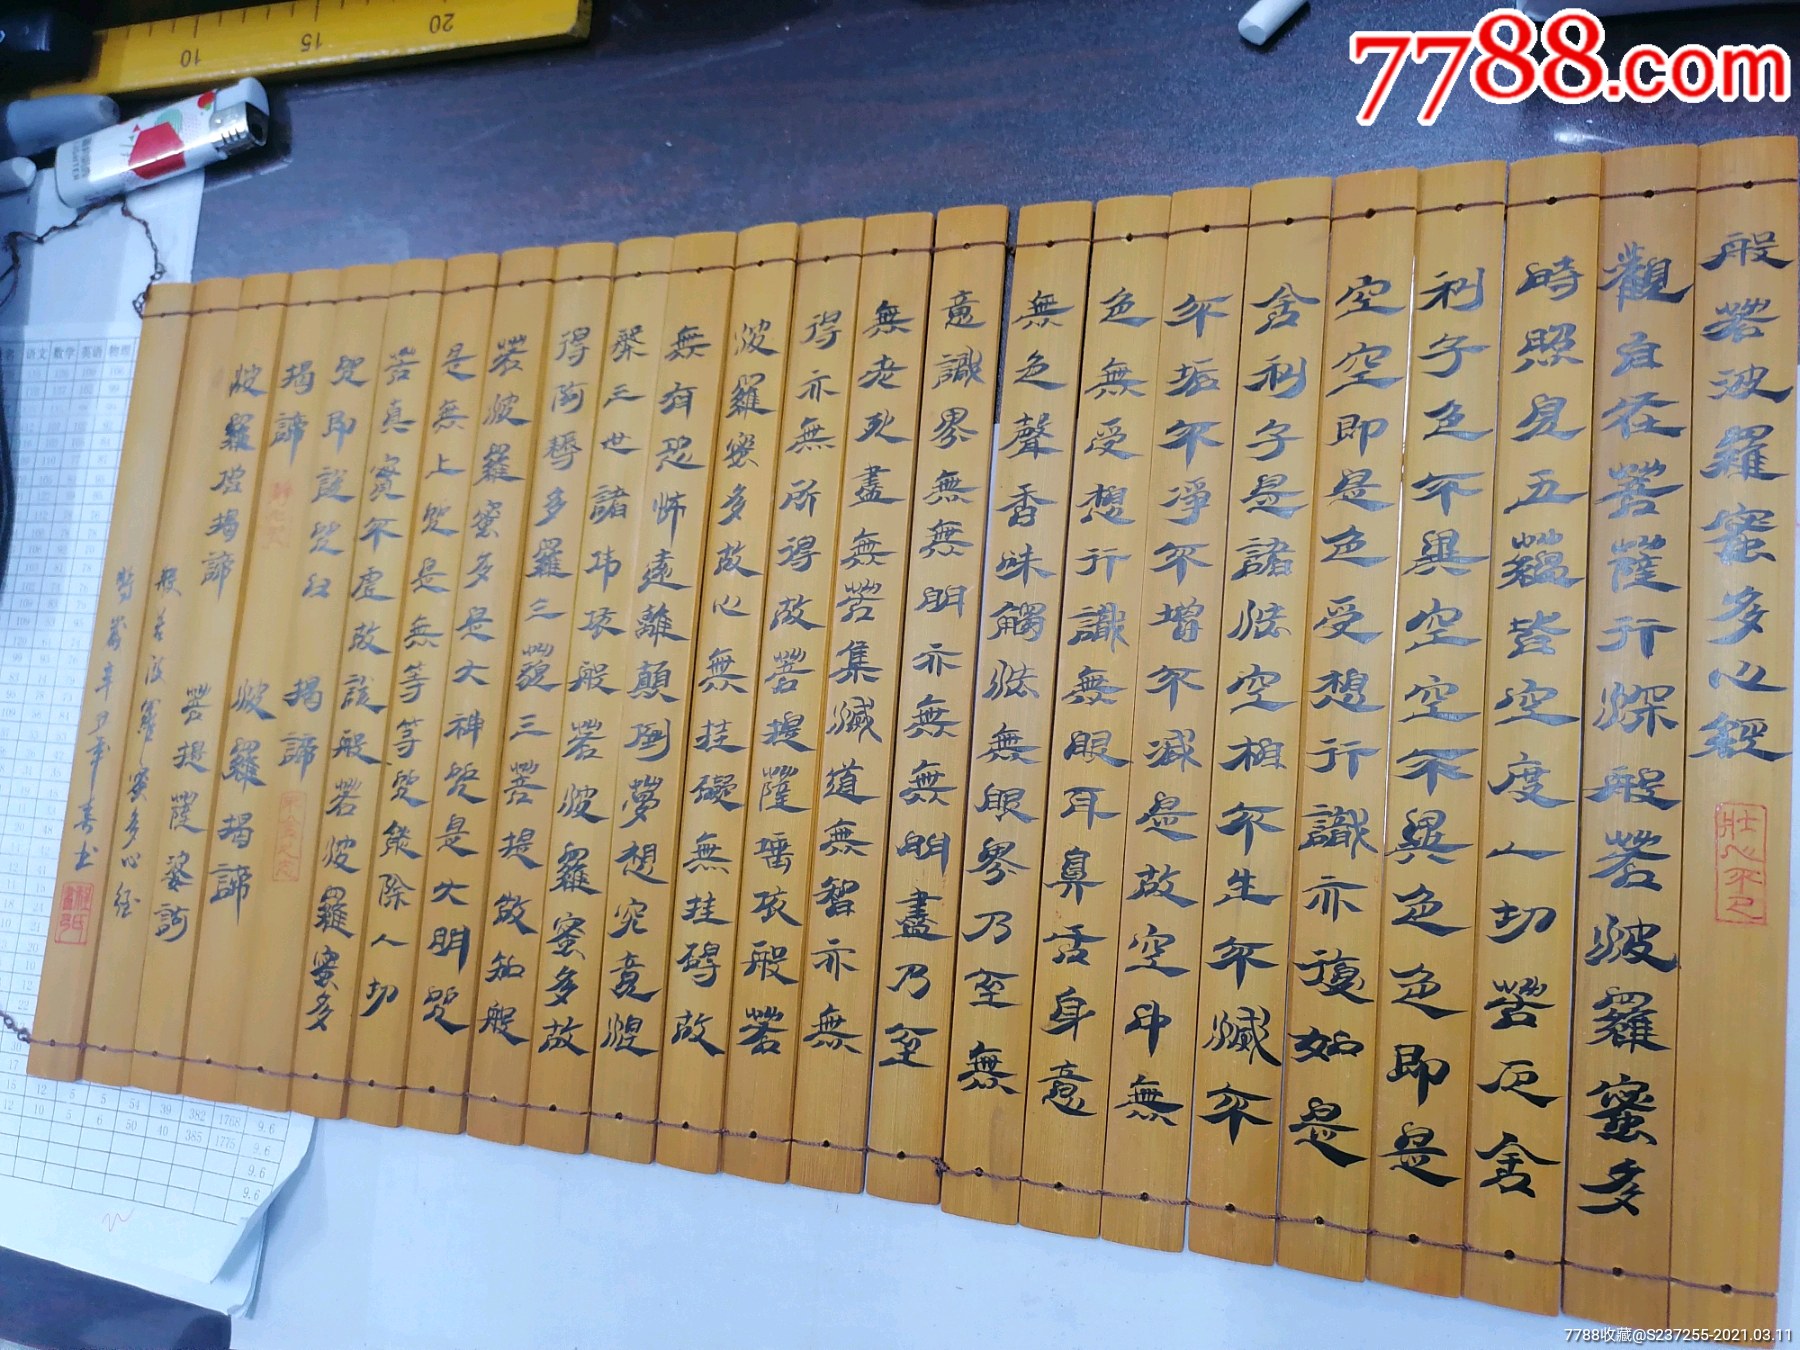 般若波羅蜜多心經
壯心不已
觀自在菩薩行深般若波羅蜜多
時照見五蘊皆空度一切苦厄舍
利子色不異空空不異色色即是
空空即是色受想行識亦復如是
舍利子是諸法空相不生不滅不
不垢不凈不增不减是故空中無
色無受想行識無眼耳鼻舌身意
無色聲香味觸法無眼界乃至無
意識界無無明亦無無明盡乃至
無老死盡無苦集滅道無智亦無
得亦無所得故菩提薩埵依般若
波羅蜜多故心無挂礙無挂碍故
無有恐怖遠離顛倒夢想究竟涅
槃三世諸佛依般若波羅蜜多故
得阿耨多羅三藐三菩提故知般
若波羅蜜多是大神咒是大明咒
是無上咒是無等等咒能除一切
苦真實不虛故說般若波羅蜜多
咒即說咒曰
揭諦 揭諦
波羅僧揭諦 波羅揭諦
菩提薩婆訶
般若波羅蜜多心經
歲辛丑年春书
7788.com
7788收藏@S237255-2021.03.11
10 15 20
语文 数学 英语 物理